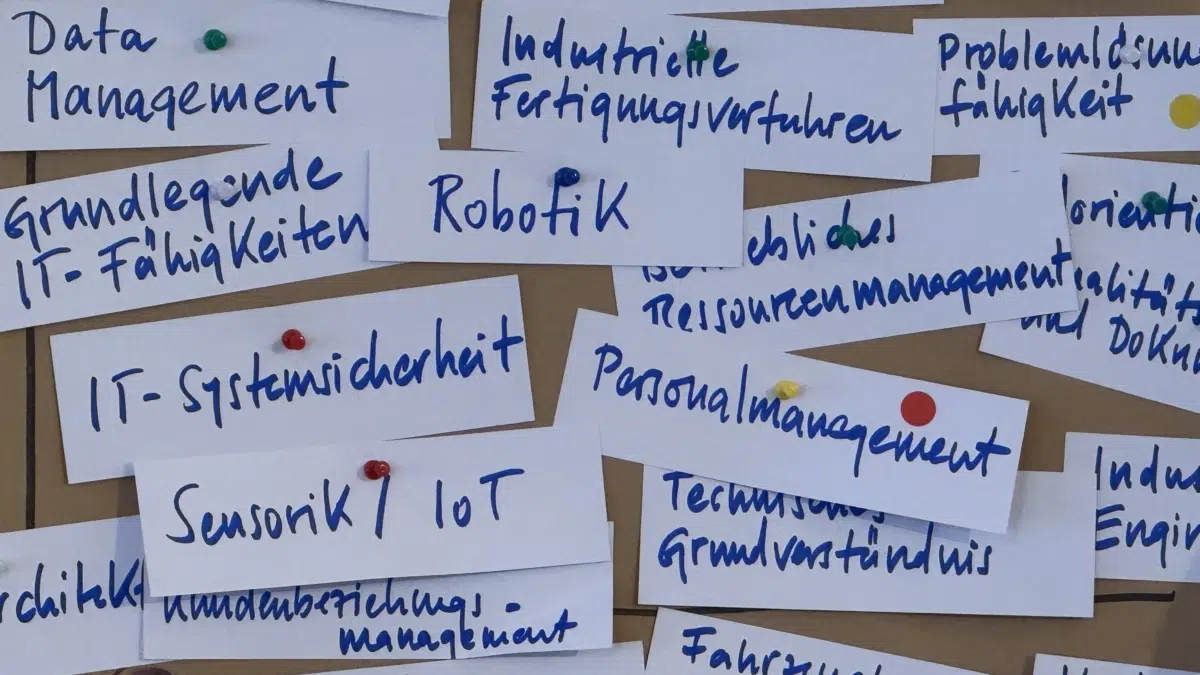 Data
Management
Industrielle
Fertigungsverfahren
Problemlösun
fähigkeit
Grundlegende
IT-Fähigkeiten
Robotik
ebliches
Ressourcenmanagement
orienti
alität
und Doku
IT-Systemsicherheit
Personalmanagement
Sensorik / IoT
Technisches
Grundverständnis
Indu
Engin
rchitekt
Kundenbeziehungs-
management
Fahrzeu